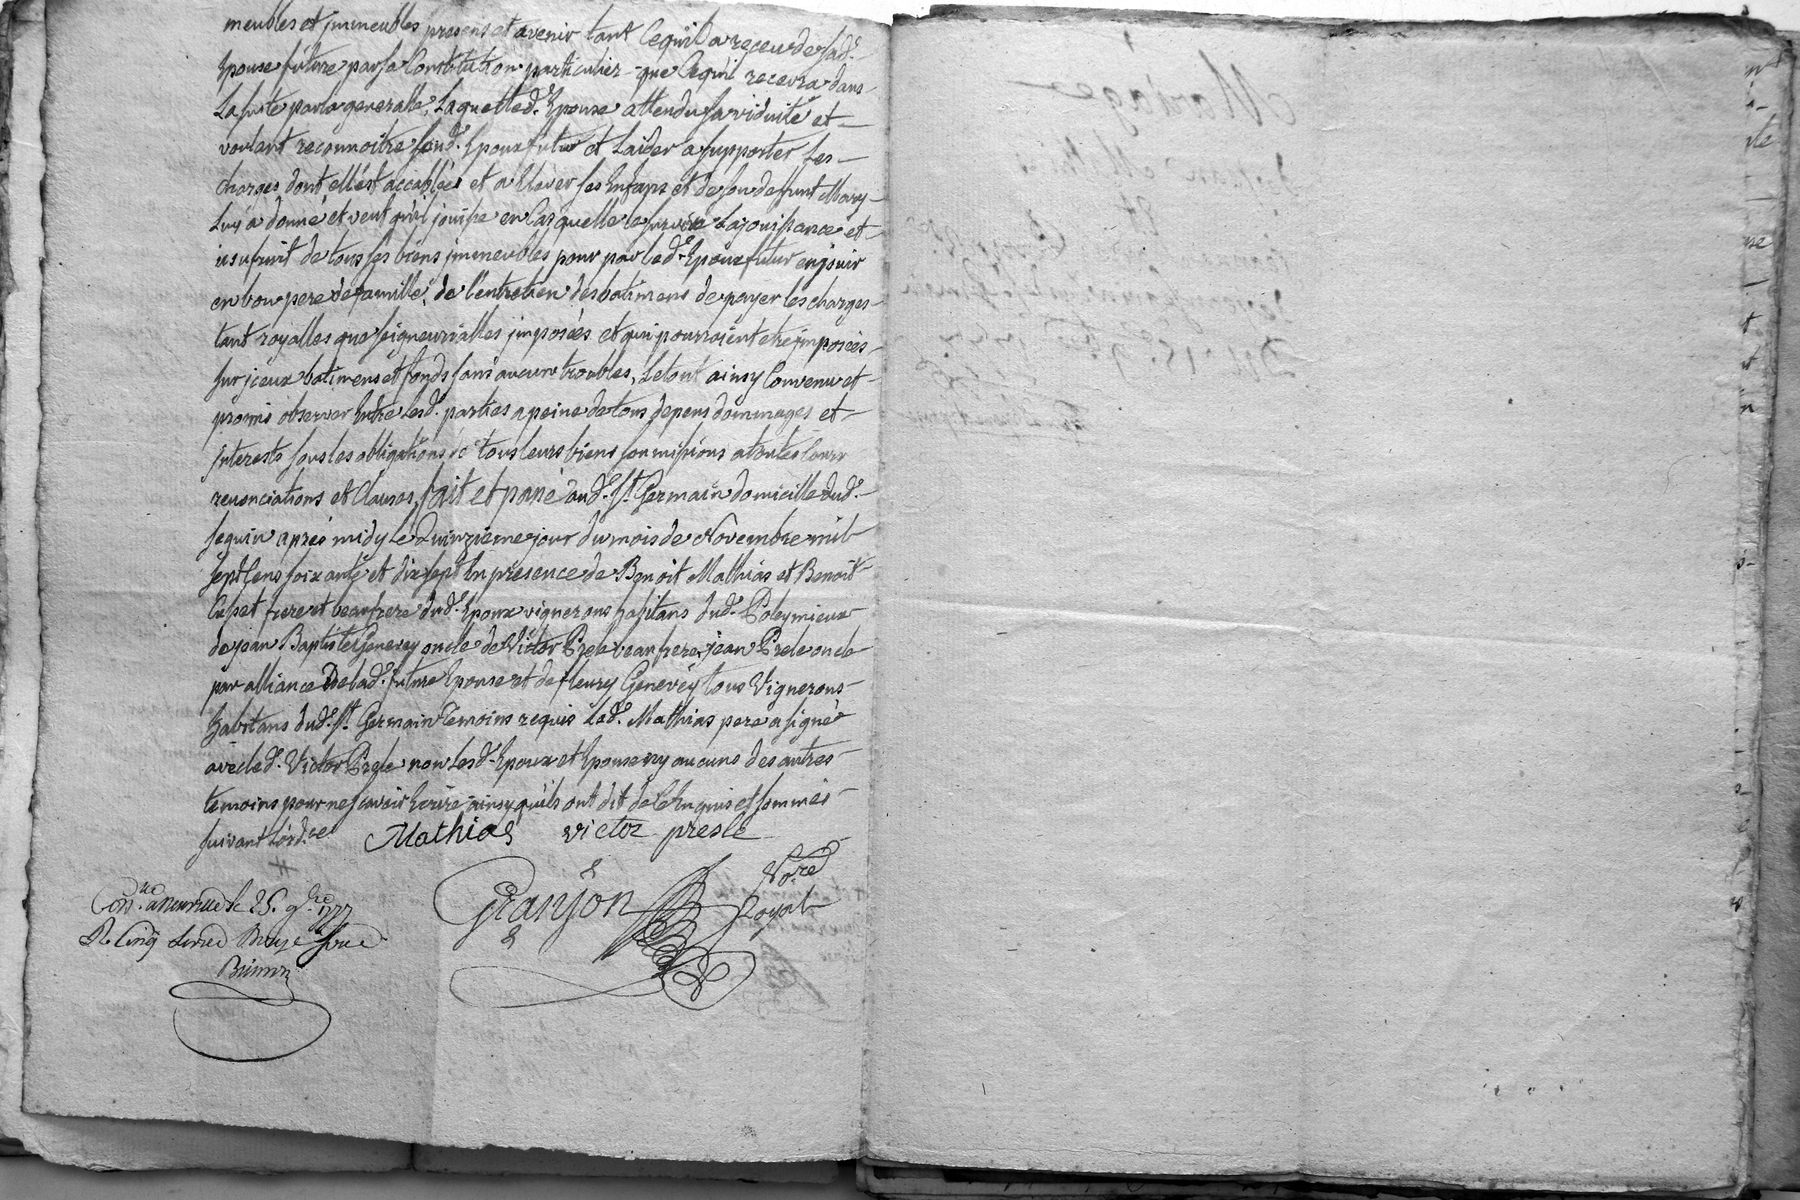 meubles et jmmeubles presens et avenir tant cequil a receu de sad.e
Epouse future par sa Constitution particulier que cequil recevra dans
la suite par la generalle, Laquelle d. Epouse attendu sa viduité et
voulant reconnoitre sond. Epoux futur et Laider a supporter les
charges dont ell'est accablée et a Elever ses Enfans et de son deffunt Mary
Luy a donné et veut qu'il jouisse en Cas quelle le survive La jouissance et
usufruit de tous ses biens jmmeubles pour par led. Epoux futur en jouir
en bon pere de famille, de l'entretien des batimens de payer les charges
tant royalles que seigneurialles jmposées et qui pourroient etre jmposées
sur jceux batimens et fonds sans aucun troubles, Le tout ainsy Convenu et
promis observer Entre Lesd. parties a peine de tous depens dommages et
jnterests sous les obligations de tous leurs biens soumissions a toutes Cours
renonciations et Clauses, fait et passé aud. St. Germain domicille dud.
seguin après midy le Quinzieme jour du mois de Novembre mil
sept Cens soixante et dix sept En presence de Benoit Mathias et Benoit
frere et beaufrere dud. Epoux vignerons habitans dud. Poleymieux
de jean Baptiste Genevey oncle de Victor Presle beaufrere, jean Presle oncle
par alliance De lad. future Epouse et de fleury Genevey tous Vignerons
habitans dud. St. Germain Temoins requis Led. Mathias pere a signé
avec led. Victor Presle non Lesd. Epoux et Epouse ny aucuns des autres
temoins pour ne sçavoir Ecrire ainsy quils ont dit de ce Enquis et sommés
suivant l'ord.ce
Mathias victor presle
Granjon No.re Royal
Con.le a neuville le 25. 9bre 1777
R. Cinq Livres
Mariage
De jean Mathias
et
Du 15.e 9bre